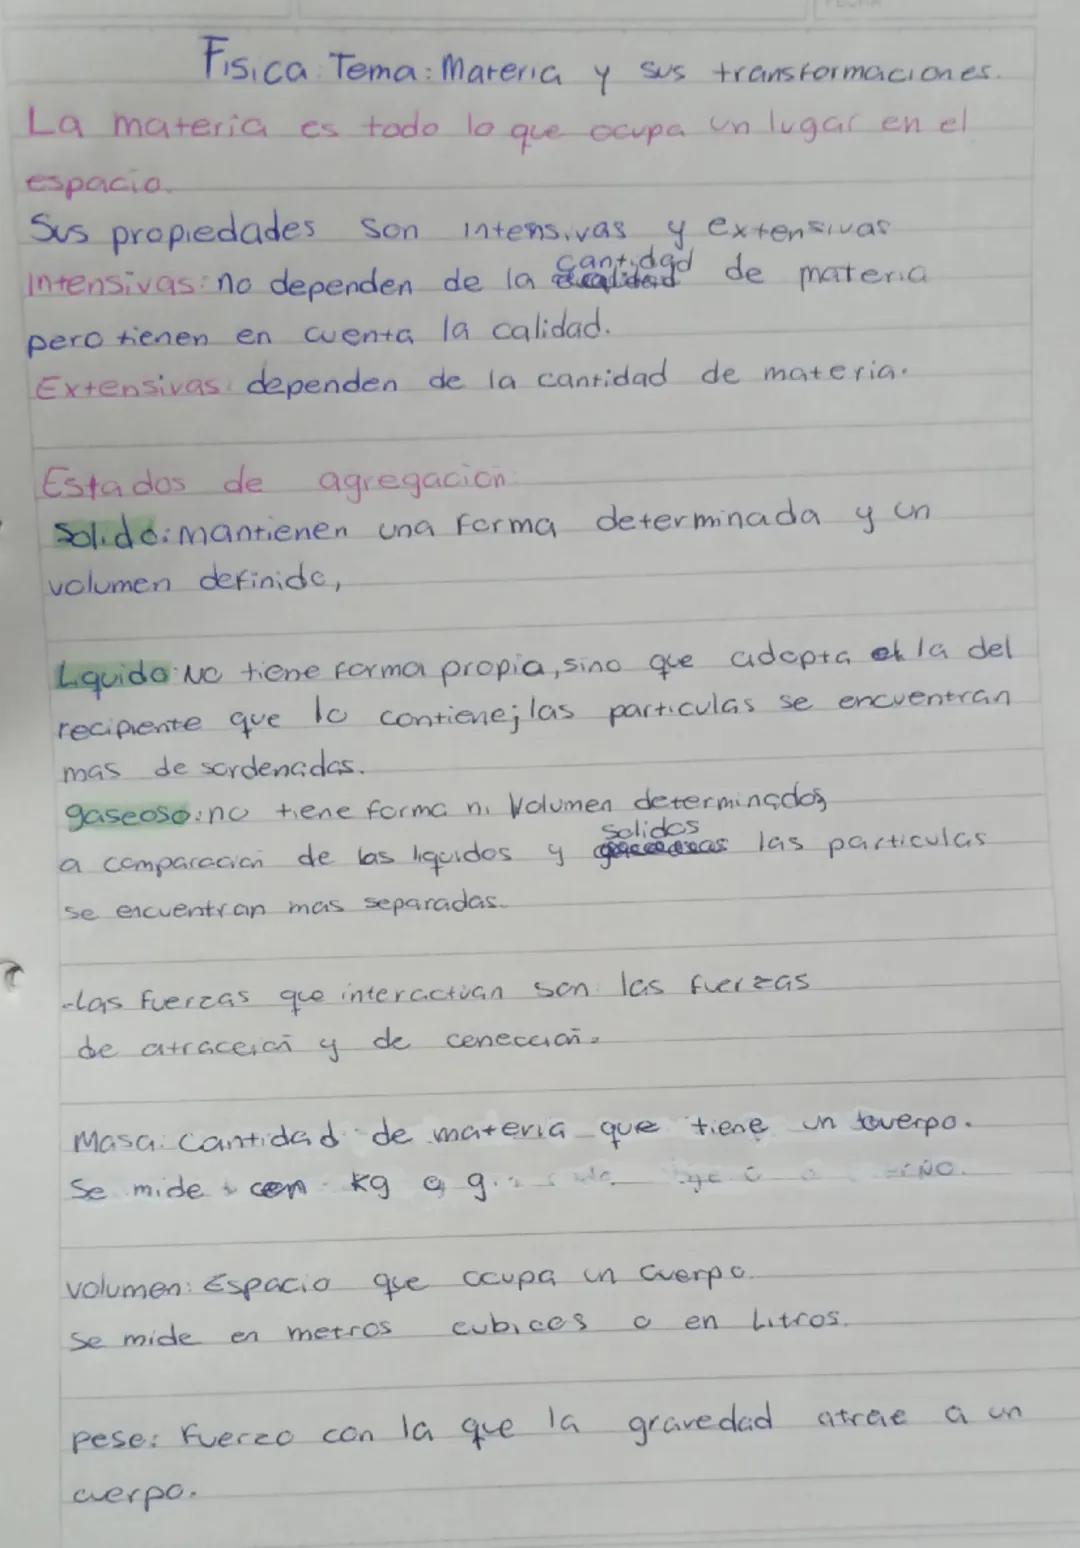 Fisica Tema: Materia y sus transformaciones.
La materia es todo lo que ocupa un lugar en el
espacio.
Sus propiedades son intensivas y extensivas
Intensivas: no dependen de la cantidad de materia
pero tienen en cuenta la calidad.
Extensivas: dependen de la cantidad de materia.
Estados de agregacion:
Solido: mantienen una forma determinada y un
volumen definido,
Liquido: No tiene forma propia, sino que adopta la del
recipiente que lo contiene; las particulas se encuentran
mas desordenadas.
gaseoso: no tiene forma ni Volumen determinados,
a comparación de las liquidos y solidos las particulas
se encuentran mas separadas.
-las fuerzas que interactúan son: las fuerzas
de atracción y de conección.
Masa: cantidad de materia que tiene un cuerpo.
Se mide con kg o g.
volumen: Espacio que ocupa un cuerpo.
se mide en metros cubicos o en Litros.
peso: fuerzo con la que la gravedad atrae a un
cuerpo.